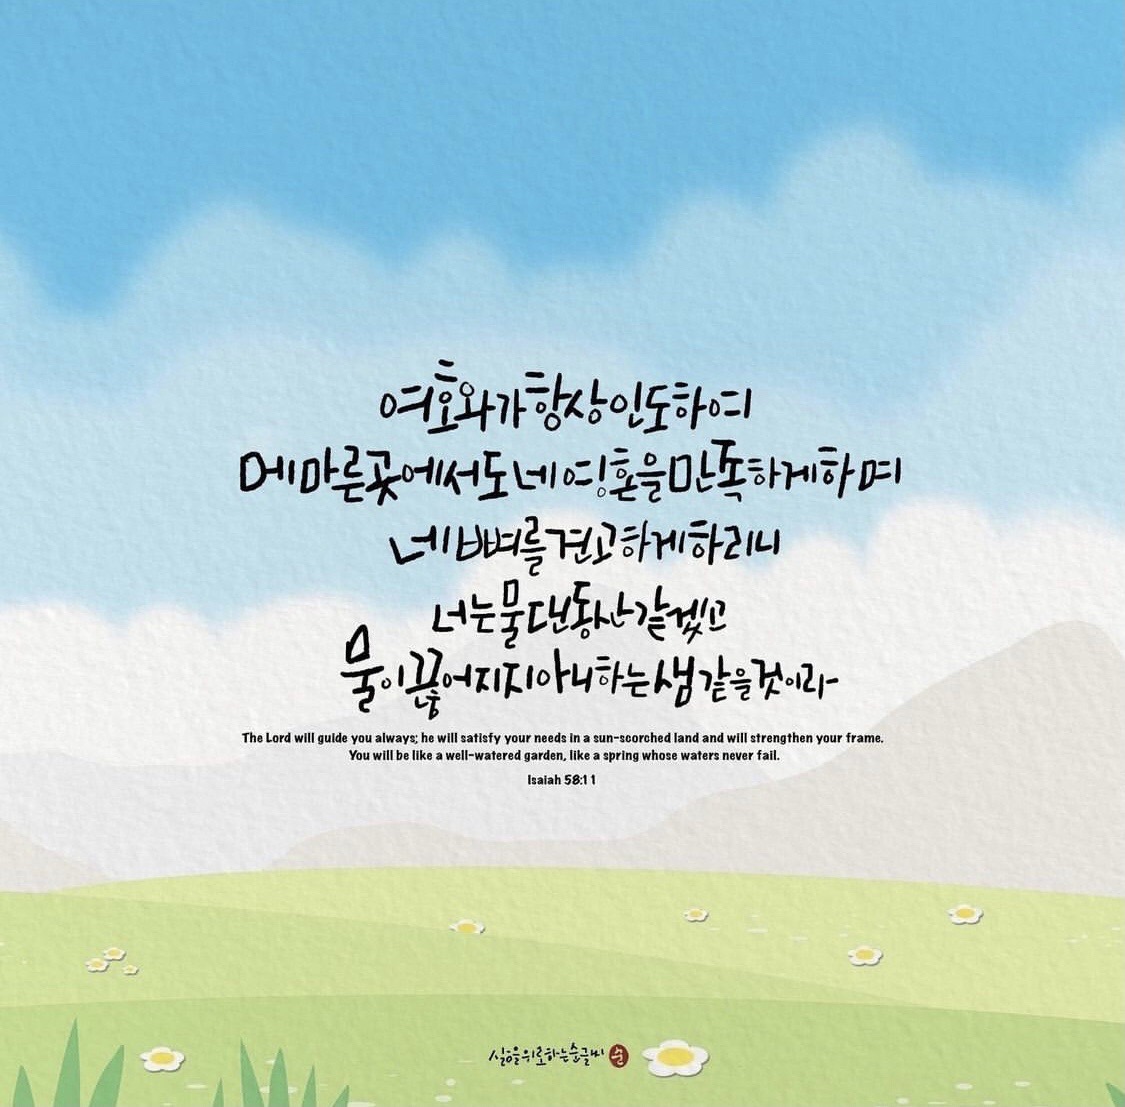 여호와가 항상 인도하여
메마른 곳에서도 네 영혼을 만족하게 하며
네 뼈를 견고하게 하리니
너는 물 댄 동산 같겠고
물이 끊어지지 아니하는 샘 같을 것이라
The Lord will guide you always; he will satisfy your needs in a sun-scorched land and will strengthen your frame.
You will be like a well-watered garden, like a spring whose waters never fail.
Isaiah 58:11
삶을위로하는순글씨 순